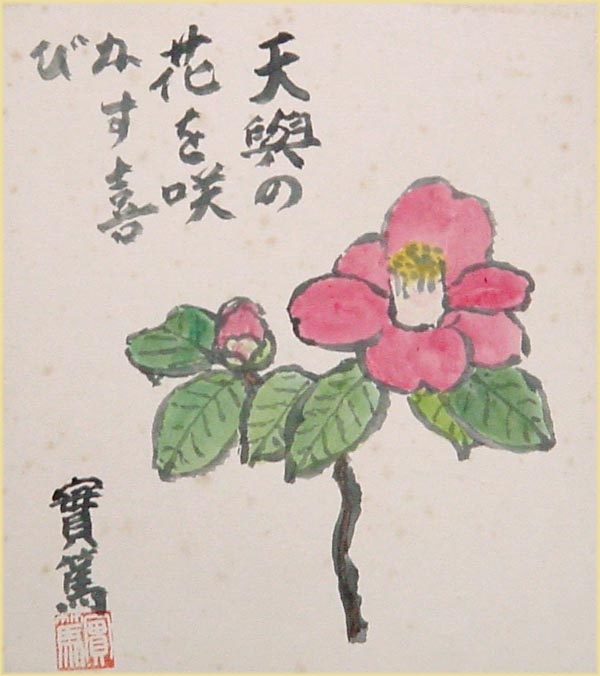 天與の
花を咲
かす喜
び
實篤
實篤